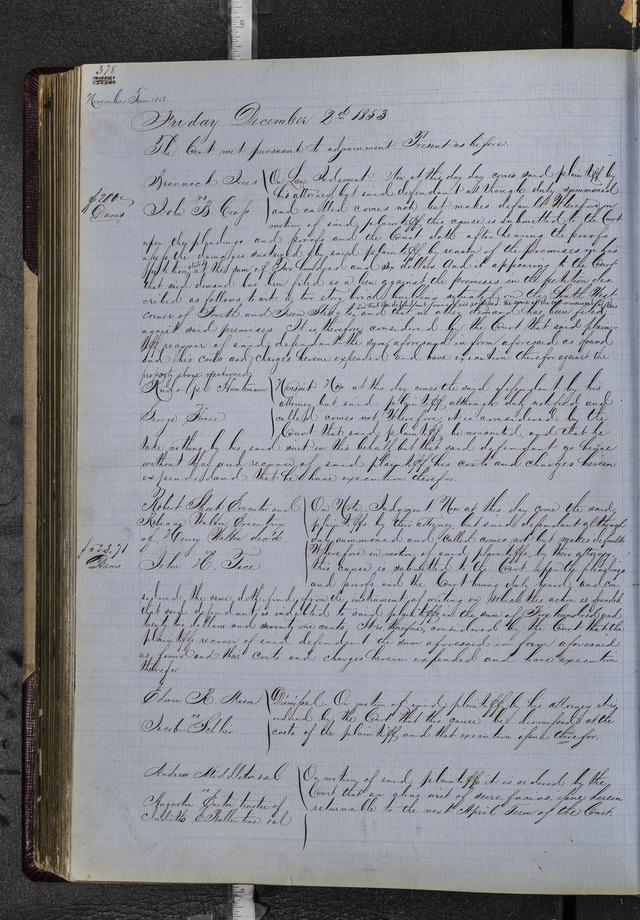 378
November Term 1853
Friday December 2d 1853
The Court met pursuant to adjournment Present as before
Brannock Jones
vs
John B Cross
$206
Dams
On Lien Judgment Now at this day comes said plaintiff by
his attorney but said defendant although duly summoned
and called comes not but makes default Wherefore on
motion of said plaintiff this cause is submitted to the Court
upon the pleadings and proofs and the Court doth after hearing the proofs
assess the damages sustained by said plaintiff by reason of the premises
at the sum of Two hundred and six dollars And it appearing to the Court
that said demand has been filed as a lien against the premises in the petition des
cribed as follows to wit a two story brick building situated on the South West
corner of and Streets
against said premises. It is therefore considered by the Court that said plain-
tiff recover of said defendant the sum aforesaid in form aforesaid as found
and his costs and charges herein expended and have execution therefor against the
property above mentioned
vs
George
Nonsuit Now at this day comes the said defendant by his
attorney but said plaintiff although duly notified and
called comes not Wherefore it is considered by the
Court that said plaintiff be nonsuited, and that he
take nothing by his said suit in this behalf but that said defendant go hence
without day and recover of said plaintiff his costs and charges herein
expended and that he have execution therefor.
Robert Executor and
Executrix
of Henry decd
vs
John
$522.71
Dams
On Note Judgment Now at this day come the said
plaintiffs by their attorney but said defendant although
duly summoned and called comes not but makes default
Wherefore on motion of said plaintiffs by their attorney
this cause is submitted to the Court upon the pleadings
and proofs and the Court having duly heard and con
sidered the same doth find upon the instrument of writing on which this action is founded
that said defendant is indebted to said plaintiffs in the sum of Five hundred and
twenty two dollars and seventy one cents. It is therefore considered by the Court that the
plaintiffs recover of said defendant the sum aforesaid in form aforesaid
as found and their costs and charges herein expended and have execution
therefor
Edwin R Mason
vs
Jacob
Dismissal On motion of said plaintiff by his attorney it is
ordered by the Court that this cause be dismissed at the
costs of the plaintiff and that execution issue therefor.
Andrew Middleton et al
vs
Augustus trustee of
Ballentine et al
On motion of said plaintiffs it is ordered by the
Court that an alias writ of scire facias issue herein
returnable to the next April Term of the Court.